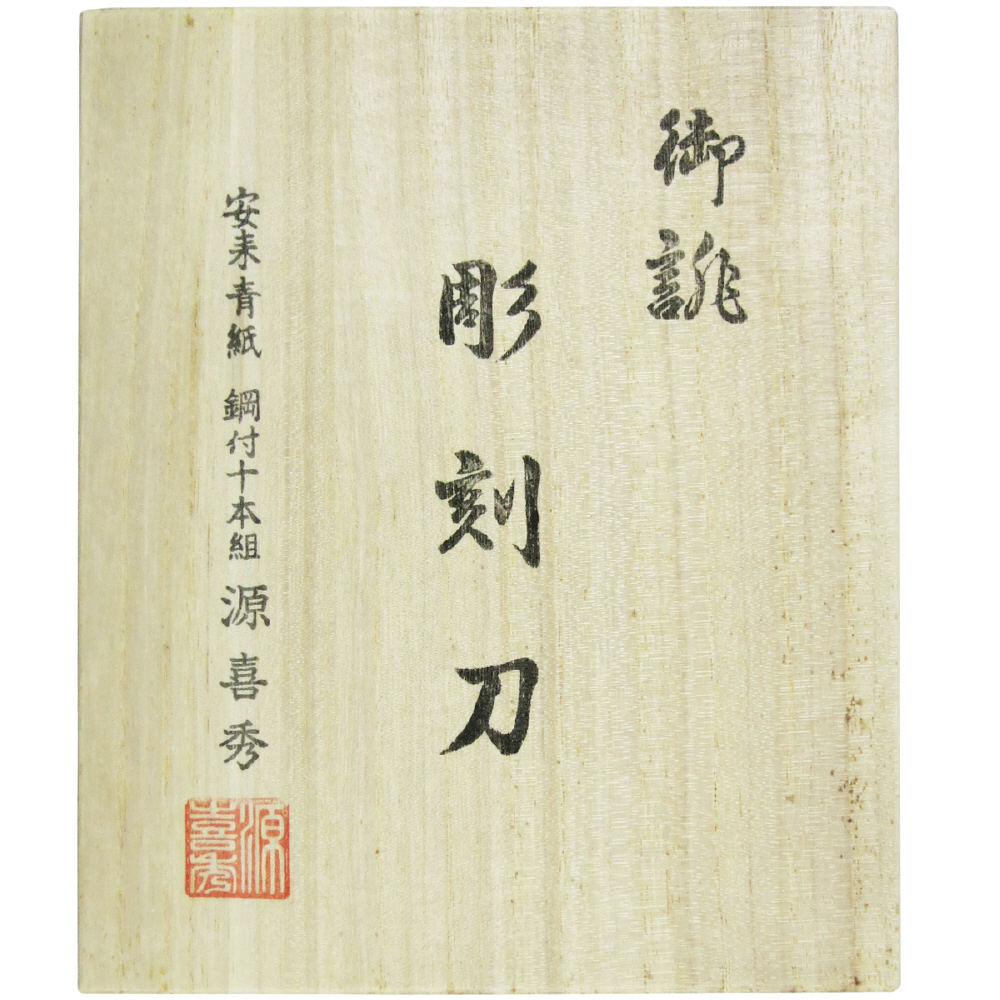 御誂
彫刻刀
安来青紙 鋼付十本組 源喜秀
源喜秀